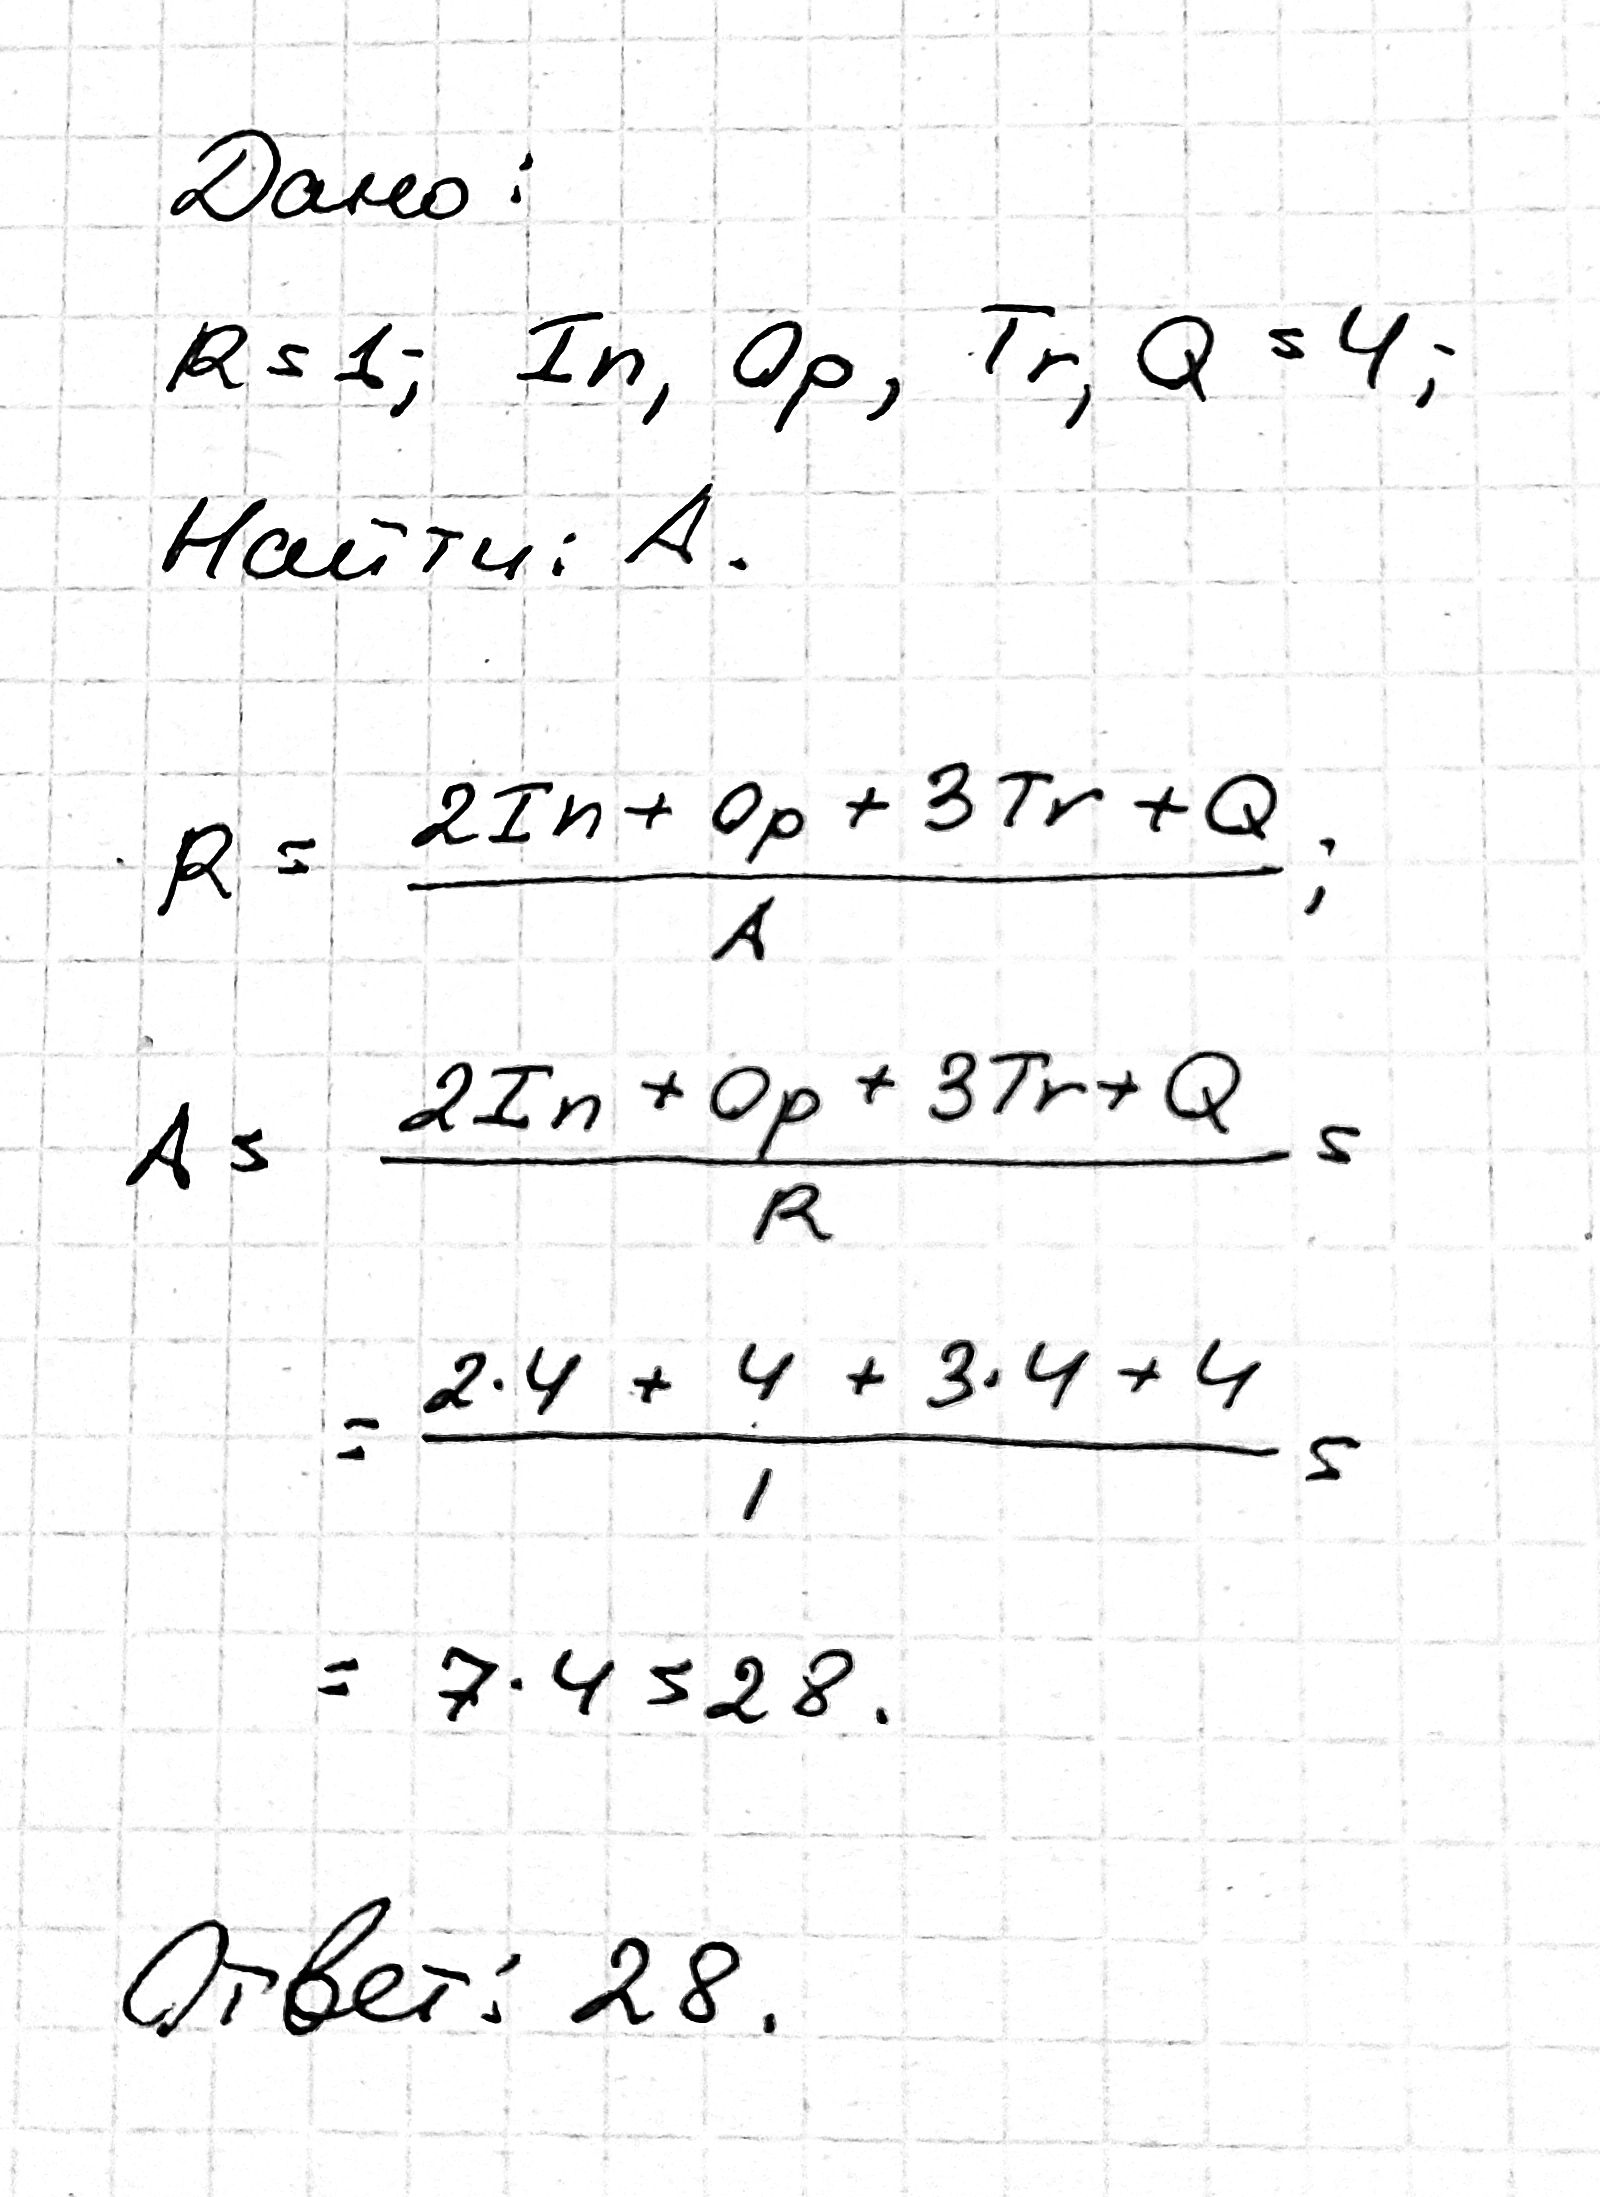 Дано:
R = 1; In, Op, Tr, Q = 4;
Найти: A.
R = (2In + Op + 3Tr + Q) / A;
A = (2In + Op + 3Tr + Q) / R =
= (2·4 + 4 + 3·4 + 4) / 1 =
= 7·4 = 28.
Ответ: 28.